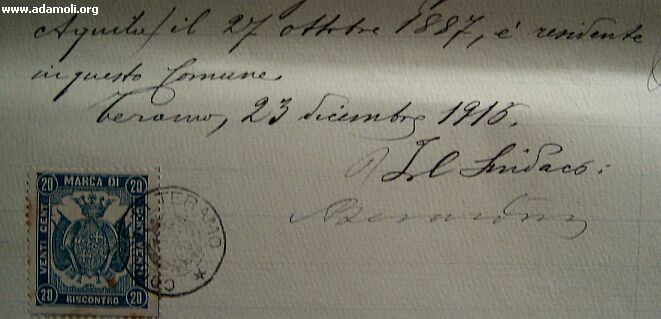 www.adamoli.org
Aquila) il 27 ottobre 1887, è residente
in questo Comune.
Teramo, 23 dicembre 1915.
Il Sindaco:
20 MARCA DI 20
VENTI CENT
VENTI CENT
TERAMO
20 RISCONTRO 20